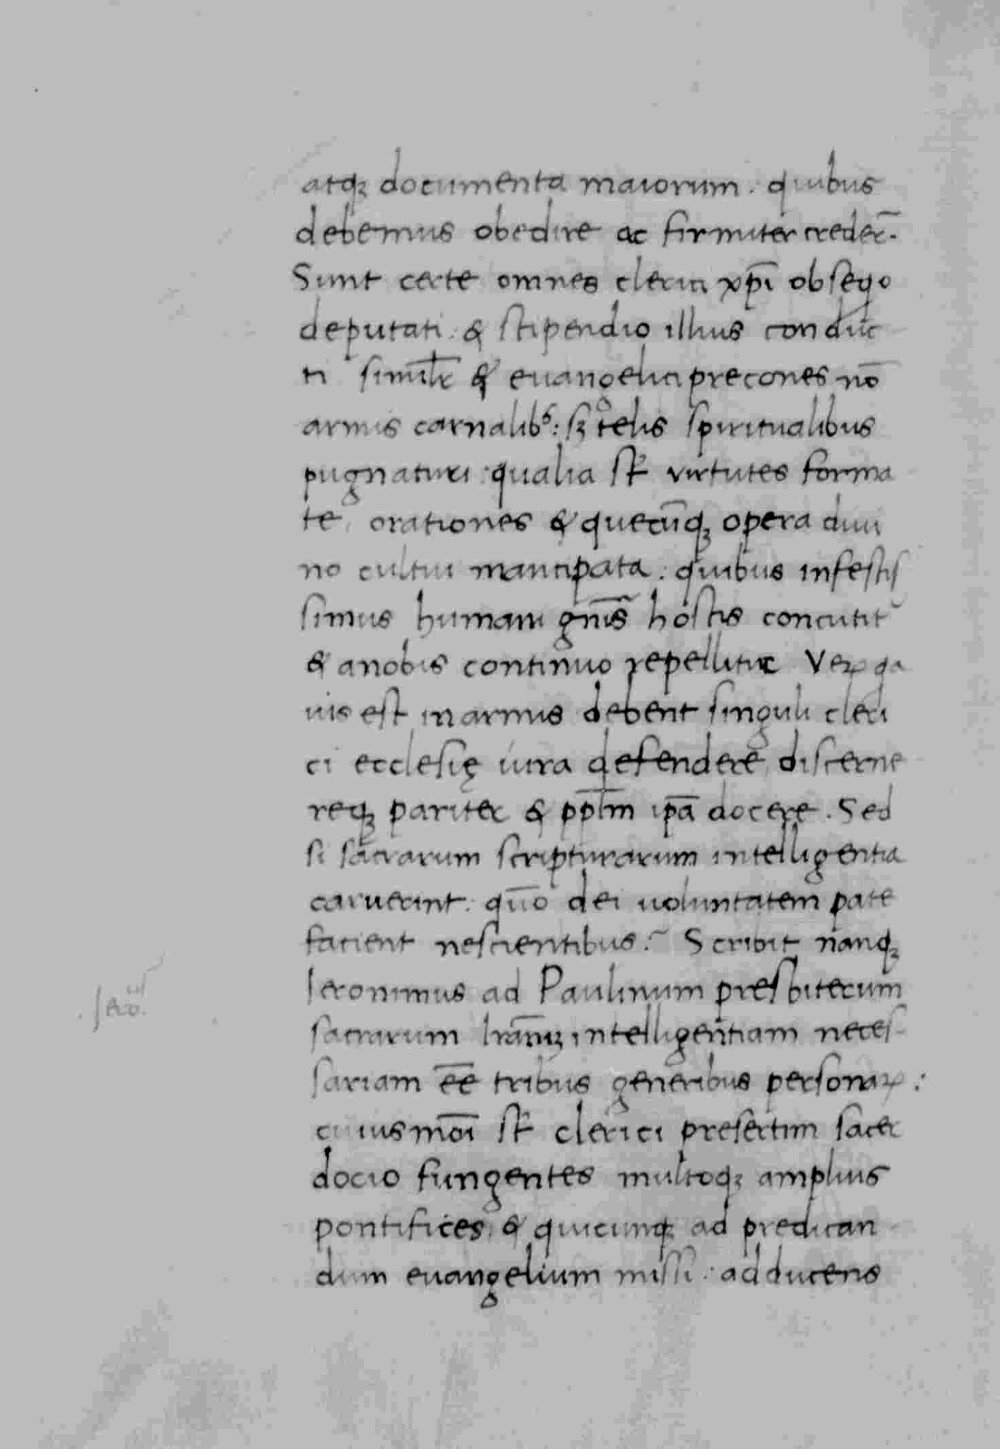 atqꝫ documenta maiorum. quibus
debemus obedire ac firmiter credeȓ.
Sunt certe omnes clerici xp̄i obseqͦo
deputati. & stipendio illius conduc
ti simil̄r & euangelici precones nō
armis carnalibꝰ: sꝫ telis spiritualibus
pugnaturi: qualia st̄ virtutes forma
te, orationes & quecūqꝫ opera diui
no cultui mancipata: quibus infestis
simus humani gn̄is hostis concutit᷑
& a nobis continuo repellitur Veꝝ qa
uis est in armis debent singuli cleri
ci ecclesię iura defendere discerne
reqꝫ pariter & pp̄lm ip̄a docere. Sed
si sacrarum scripturarum intelligentia
caruerint: quō dei uoluntatem pate
facient nescientibus? Scribit nanqꝫ
Ieronimus ad Paulinum presbiterum
Iero.
sacrarum lr̄arꝫ intelligentiam neces-
sariam ēē tribus generibus personaꝝ:
cuiusmōi st̄ clerici presertim sacer
docio fungentes multoqꝫ amplius
pontifices, & quicunqꝫ ad predican
dum euangelium missi: adducens